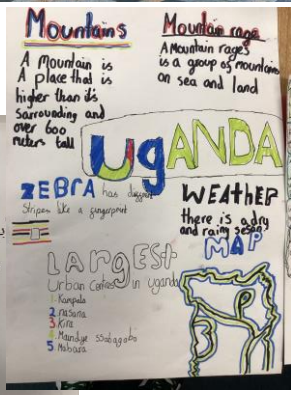 Mountains
A mountain is
A place that is
higher than it's
sarrounding and
over 600
meters tall
Mountain rage
A Mountain rages
is a group of mountains
on sea and land
UgANDA
ZEBRA has
Stripes like a fingerprint
WEATHER
there is a dry
and rainy seson
MAP
LARgESt
Urban Centres in uganda
1. Kampala
2. nasana
3 Kira
4 Maindye ssabagabo
5 Mabara